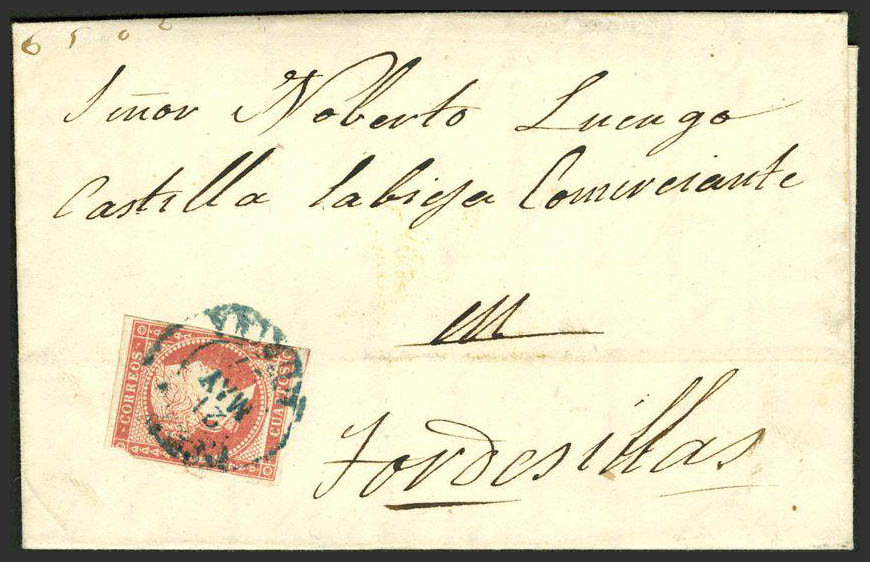 6 5 0 6
Señor Noberto Luengo
Castilla labieja Comerciante
en
Tordesillas
CORREOS
MAY